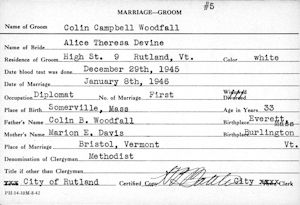 #5
MARRIAGE—GROOM
Name of Groom Colin Campbell Woodfall
Name of Bride Alice Theresa Devine
Residence of Groom High St. 9 Rutland, Vt. Color white
Date blood test was done December 29th, 1945
Date of Marriage January 8th, 1946
Occupation Diplomat No. of Marriage First Widowed Divorced
Place of Birth Somerville, Mass Age in Years 33
Father's Name Colin B. Woodfall Birthplace Everett, Mass
Mother's Name Marion E. Davis Birthplace Burlington Vt
Place of Marriage Bristol, Vermont
Denomination of Clergyman Methodist
Title if other than Clergyman
City of Rutland Certified Copy City Clerk